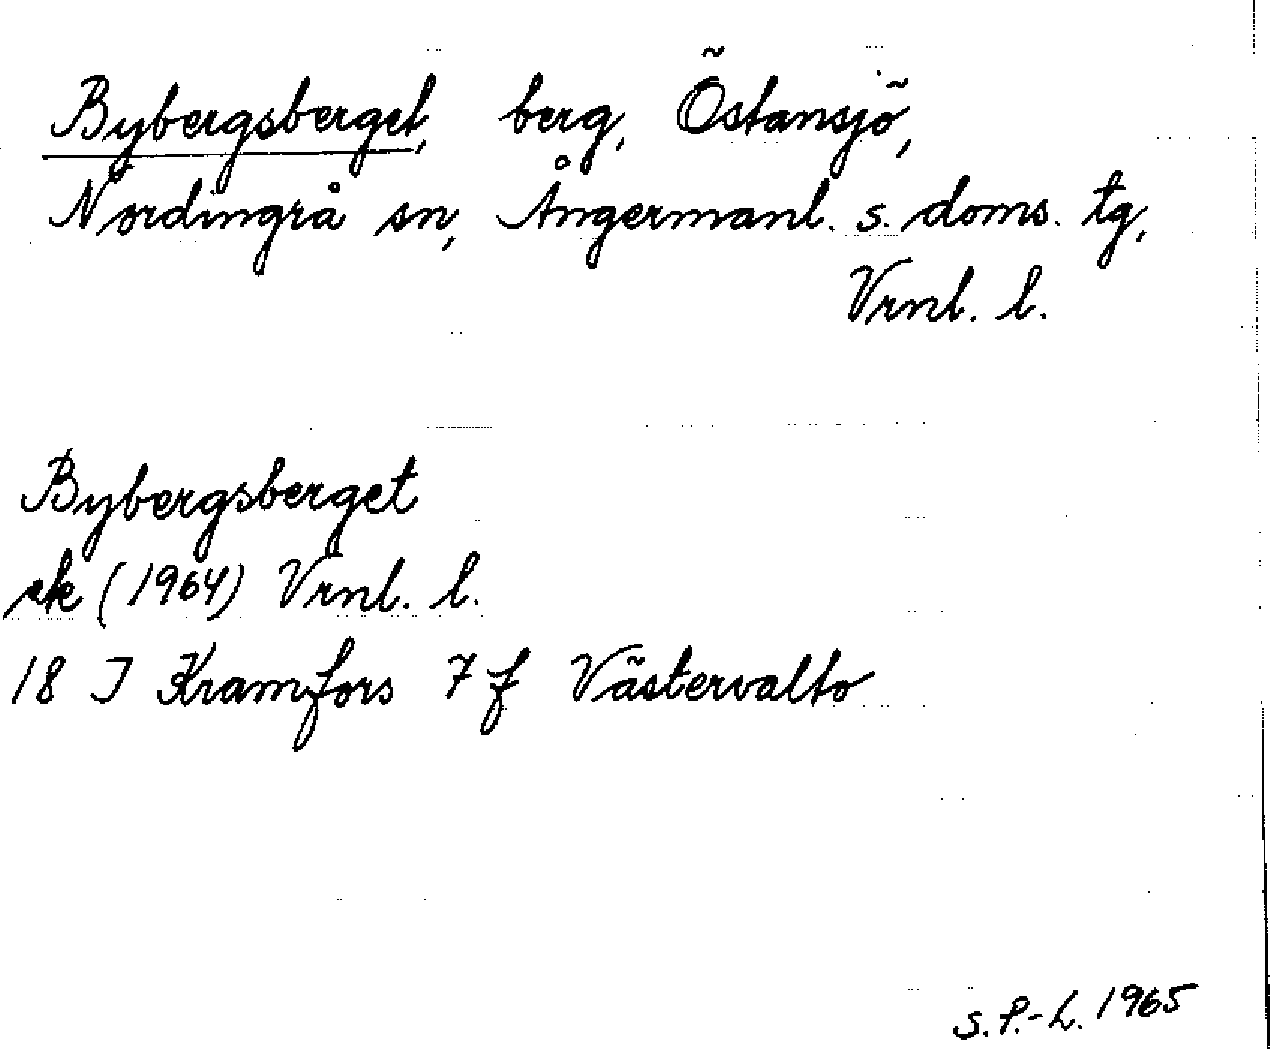 Bybergsberget, berg, Östansjö,
Nordingrå sn, Ångermanl. s. doms. tg,
Vrnl. l.
Bybergsberget
ek (1964) Vrnl. l.
18 J Kramfors 7 f Västervalto
S. P.-L. 1965